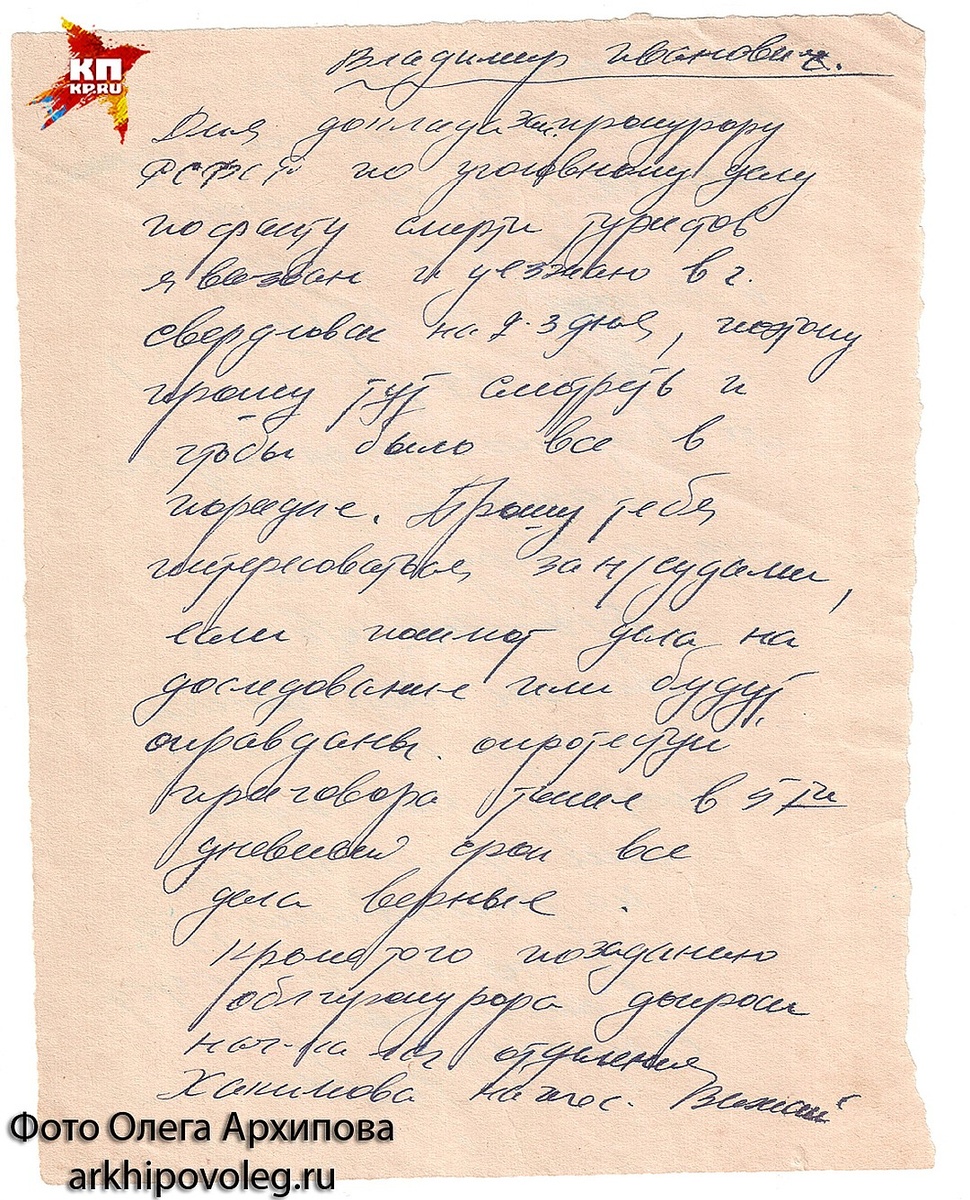 КП
KP.RU
Владимир Иванович.
Для доклада Зам.прокурору
РСФСР по уголовному делу
по факту смерти туристов
я вызван и уезжаю в г.
Свердловск на 2-3 дня, поэтому
прошу тут смотреть и
чтобы было все в
порядке. Прошу тебя
интересоваться за н/судами,
если пошлют дела на
доследование или будут
оправданы. опротестуй
приговора только в 5ти
дневный срок все
дела верные.
Кроме того по заданию
облпрокурора допроси
нач-ка л/г отделения
Хакимова на пос. Вижай
Фото Олега Архипова
arkhipovoleg.ru